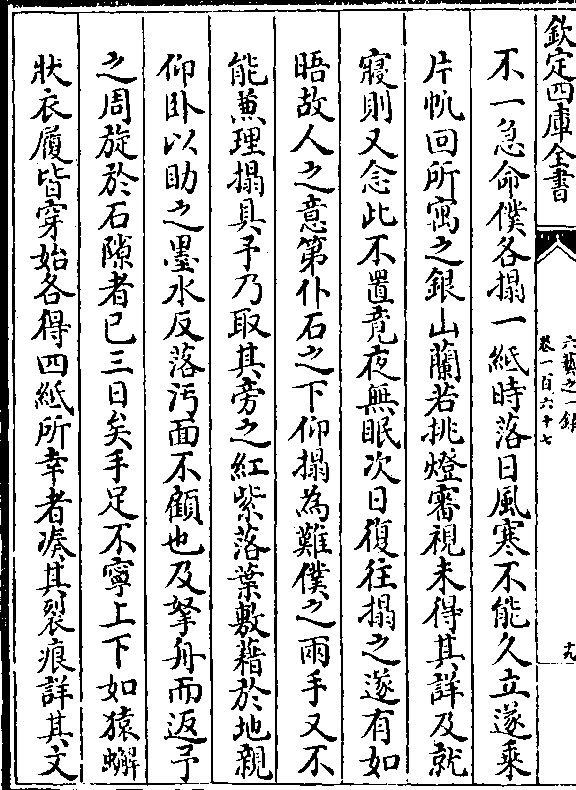 欽定四庫全書
六藝之一録
卷一百六十七
十九
不一急命僕各搨一紙時落日風寒不能久立遂乘
片帆回所寓之銀山蘭若挑燈審視未得其詳及就
寢則又念此不置竟夜無眠次日復往搨之遂有如
晤故人之意第仆石之下仰搨為難僕之兩手又不
能兼理搨具予乃取其旁之紅紫落葉敷藉於地親
仰卧以助之墨水反落污面不顧也及拏舟而返予
之周旋於石隙者已三日矣手足不寧上下如猿蠏
狀衣履皆穿始各得四紙所幸者湊其裂痕詳其文